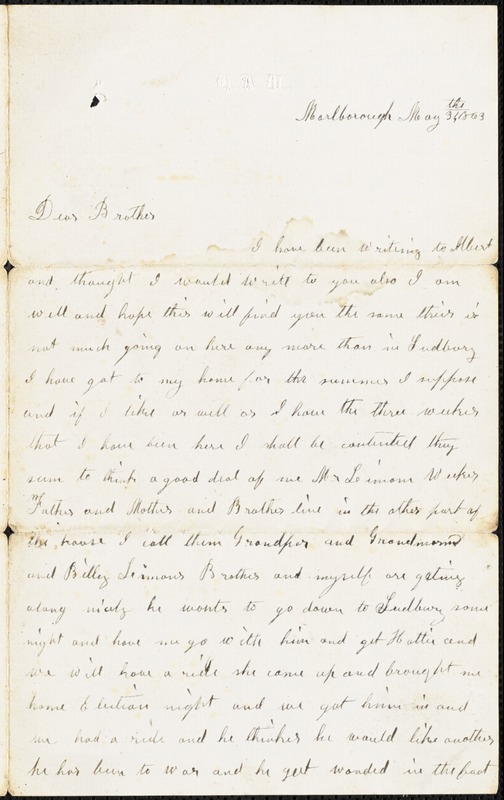 Marlborough May 31th 1863
Dear Brother
I have been writing to Albert
and thought I would write to you also I am
well and hope this will find you the same their is
not much going on here any more than in Sudbury
I have got to my home for the summer I suppose
and if I like as well as I have the three weekes
that I have been here I shall be contented they
seem to think a good deal of me Mr Wekes
Father and Mother and Brother live in the other part of
the house I call them Grandpar and Grandmarm
and Billey Brother and myself are geting
along nicely he wants to go down to Sudbury some
night and have me go with him and get Hattie and
we will have a ride she came up and brought me
home Election night and we got him in and
we had a ride and he thinkes he would like another
he has been to war and he get wonded in the foot